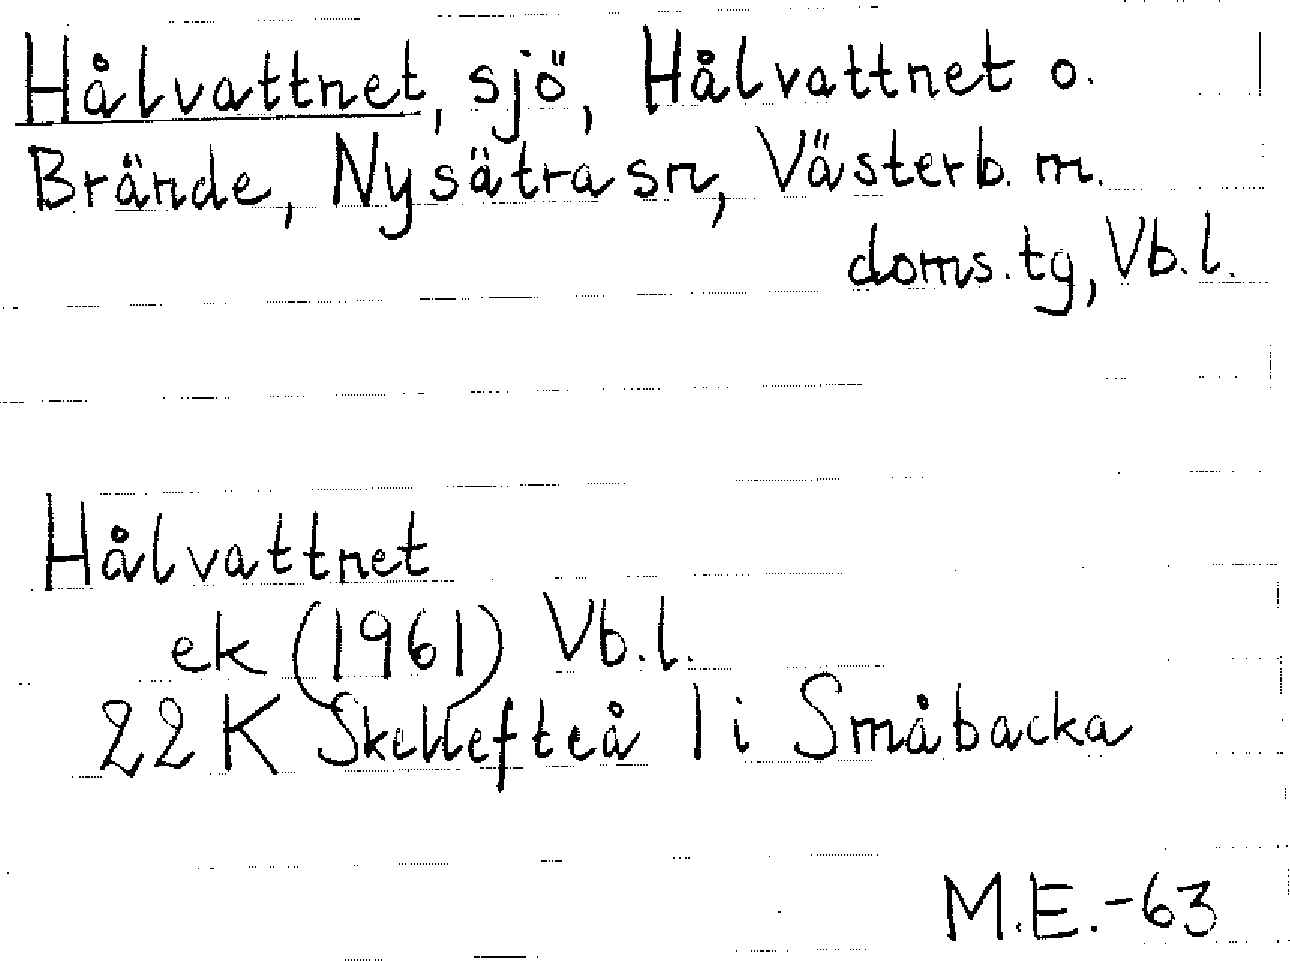 Hålvattnet, sjö, Hålvattnet o.
Brände, Nysätra sn, Västerb. m.
doms. tg, Vb. l.
Hålvattnet
ek (1961) Vb. l.
22 K Skellefteå 1 i Småbacka
M.E.-63